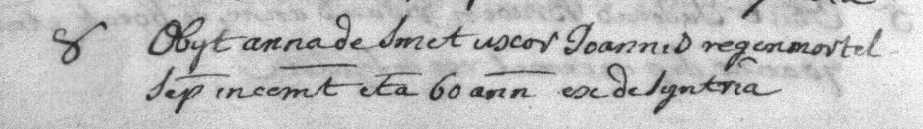 8 Obyt anna de Smet uxor Joannis regenmortel
Sep in cemt eta 60 ann ex de Syntria